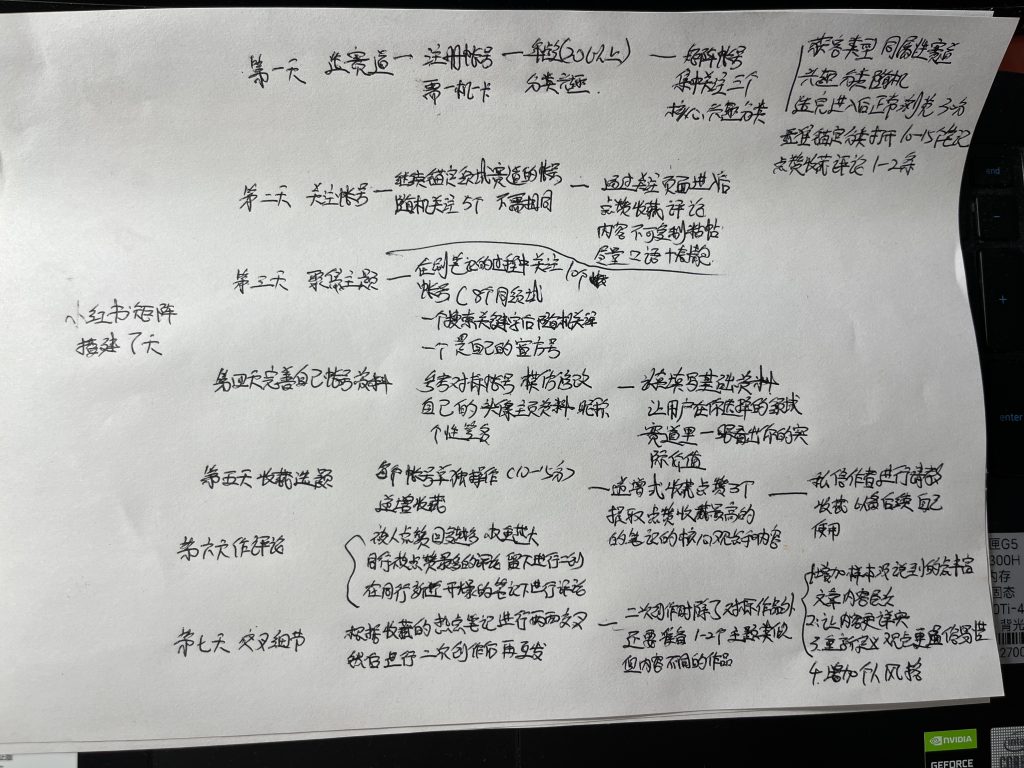 小红书矩阵
搭建7天
第一天 选赛道
注册帐号
需一机一卡
年龄(20以上)
分类兴趣
矩阵帐号
集中关注三个
核心兴趣分类
获客类型 同属性赛道
兴趣分类随机
选完进入后正常刷览30分
锚定分类打开10-15个笔记
点赞收藏评论1-2条
第二天 关注帐号
继续锚定领域赛道的帐号
随机关注5个 不需相同
通过关注页面进入后
点赞收藏评论
内容不可复制粘帖
尽量口语+表情包
第三天 聚焦主题
在刷笔记的过程中关注10个
帐号(8个同领域
一个搜索关键字后随机关注
一个是自己的官方号
第四天完善自己帐号资料
参考对标帐号 模仿修改
自己的头像主页资料 昵称
个性签名
填写基础资料
让用户在你选择的领域
赛道里一眼看出你的实
际价值
第五天 收藏选题
每个帐号单独操作(10-15分)
递增收藏
递增式收藏点赞3个
提取点赞收藏最高的
的笔记的核心观点和内容
私信作者进行请教
收藏 以备后续自己
使用
第六天作评论
被人点赞回复 权重
同行被点赞最多的评论留下进行
在同行新近开爆的笔记下进行评论
第七天 交叉细节
根据收藏的热点笔记进行两两交叉
然后进行二次创作后再复发
二次创作时除了对标作品外
还要准备1-2个主题类似
但内容不同的作品
1.增加样本 丰富
文章内容层次
2.让内容更详实
3.重新定义观点更通俗易懂
4.增加个人风格
end
enter
匣G5
300H
内存
固态
0Ti-4
背光
2700
NVIDIA
GEFORCE
intel